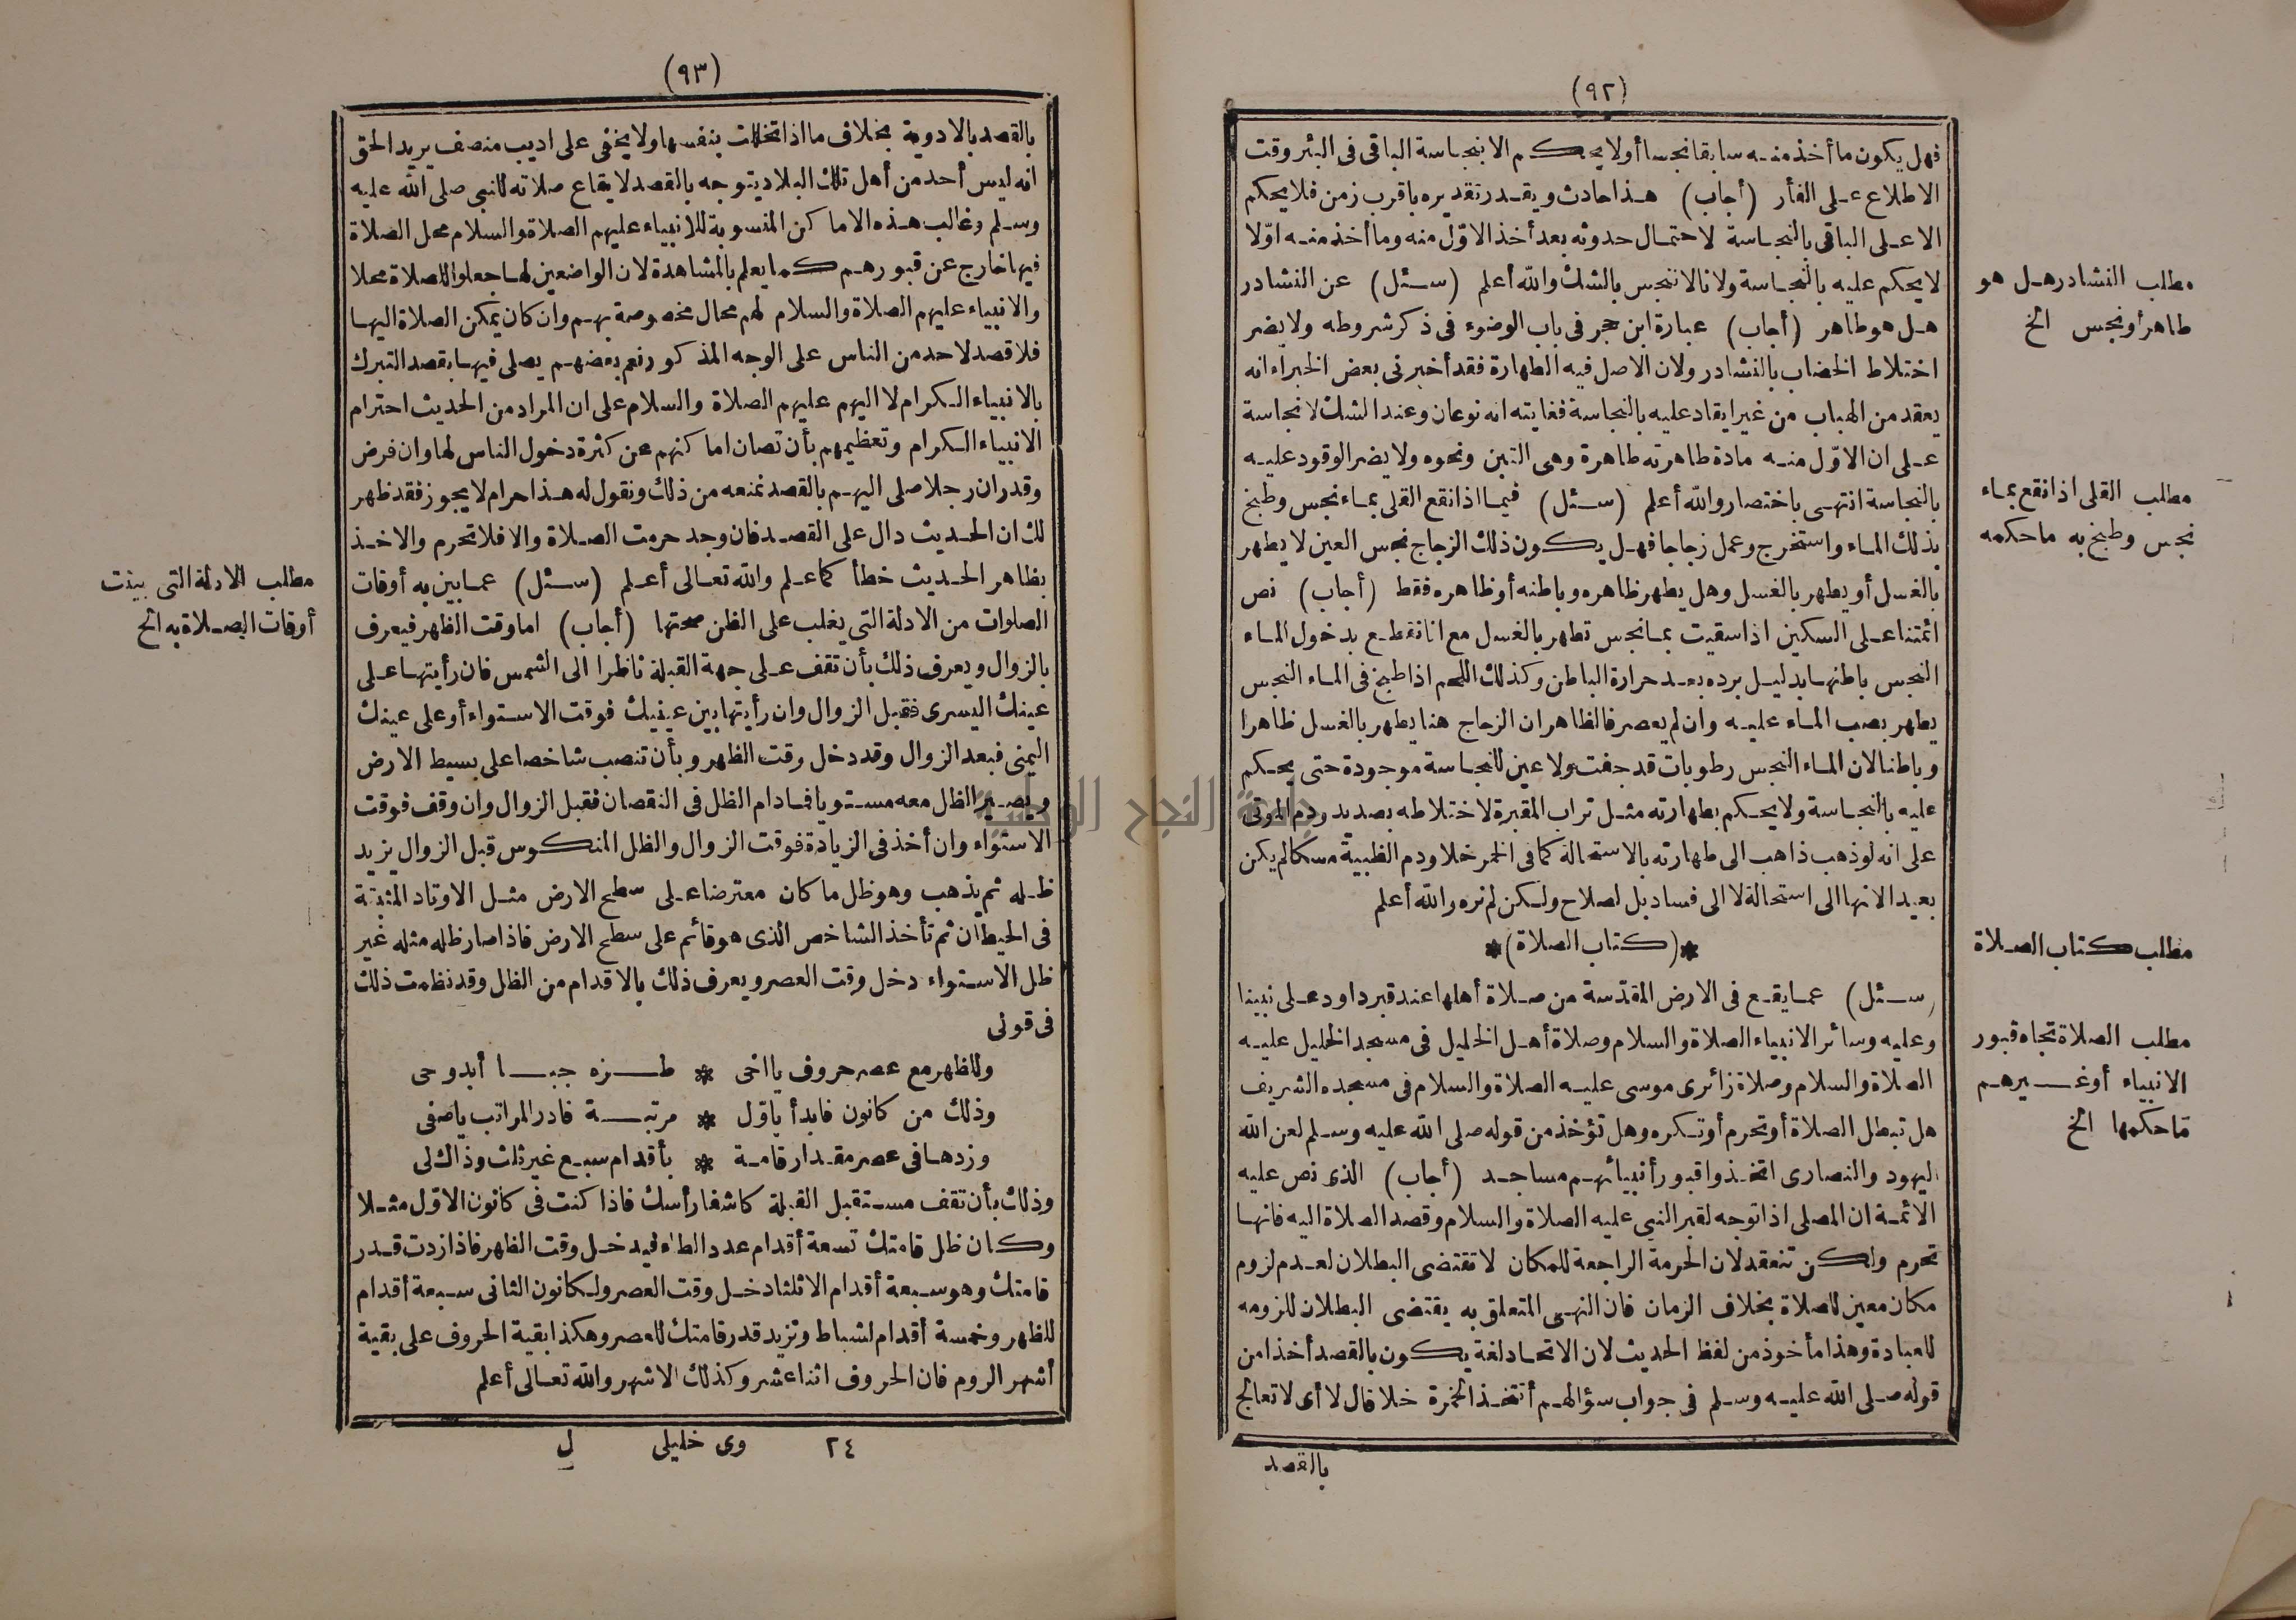 (٩٢)
فهل يكون ما أخذ منه سابقا نجسا أولا يحكم الا بنجاسة الباقى فى البئر وقت
الاطلاع على الفأر (أجاب) هذا حادث ويقدر تقديره باقرب زمن فلا يحكم
الا على الباقى بالنجاسة لاحتمال حدوثه بعد أخذ الاوّل منه وما أخذ منه اوّلا
لا يحكم عليه بالنجاسة ولانا لا ننجس بالشك والله أعلم (سئل) عن النشادر
هل هو طاهر (أجاب) عبارة ابن حجر فى باب الوضوء فى ذكر شروطه ولا يضر
اختلاط الخضاب بالنشادر ولان الاصل فيه الطهارة فقد أخبرنى بعض الخبراء انه
يعقد من الهباب من غير ايقاد عليه بالنجاسة فغايته انه نوعان وعند الشك لا نجاسة
على ان الاوّل منه مادة طاهرته طاهرة وهى التبن ونحوه ولا يضر الوقود عليه
بالنجاسة انتهى باختصار والله أعلم (سئل) فيما اذا نقع القلى بماء نجس وطبخ
بذلك الماء واستخرج وعمل زجاجا فهل يكون ذلك الزجاج نجس العين لا يطهر
بالغسل أو يطهر بالغسل وهل يطهر ظاهره وباطنه أو ظاهره فقط (أجاب) نص
ائمتنا على السكين اذا سقيت بمانجس تطهر بالغسل مع انا نقطع بدخول الماء
النجس باطنها بدليل برده بعد حرارة الباطن وكذلك اللحم اذا طبخ فى الماء النجس
يطهر بصب الماء عليه وان لم يعصر فالظاهر ان الزجاج هنا يطهر بالغسل ظاهرا
وباطنا لان الماء النجس رطوبات قد جفت ولا عين للنجاسة موجودة حتى يحكم
عليه بالنجاسة ولا يحكم بطهارته مثل تراب المقبرة لاختلاطه بصديد ودم الموتى
على انه لو ذهب ذاهب الى طهارته بالاستحالة كما فى الخمر خلا ودم الظبية مسكا لم يكن
بعيدا لانها الى استحالة لا الى فساد بل لصلاح ولكن لم نره والله أعلم
*(كتاب الصلاة)*
(سئل) عما يقع فى الارض المقدّسة من صلاة أهلها عند قبر داود على نبينا
وعليه وسائر الانبياء الصلاة والسلام وصلاة أهل الخليل فى مسجد الخليل عليه
الصلاة والسلام وصلاة زائرى موسى عليه الصلاة والسلام فى مسجده الشريف
هل تبطل الصلاة أو تحرم أو تكره وهل تؤخذ من قوله صلى الله عليه وسلم لعن الله
اليهود والنصارى اتخذوا قبور أنبيائهم مساجد (أجاب) الذى نص عليه
الائمة ان المصلى اذا توجه لقبر النبى عليه الصلاة والسلام وقصد الصلاة اليه فانها
تحرم ولكن تنعقد لان الحرمة الراجعة للمكان لا تقتضى البطلان لعدم لزوم
مكان معين للصلاة بخلاف الزمان فان النهى المتعلق به يقتضى البطلان للزومه
للعبادة وهذا مأخوذ من لفظ الحديث لان الاتحاد لغة يكون بالقصد أخذا من
قوله صلى الله عليه وسلم فى جواب سؤالهم أنتخذ الخمرة خلا قال لا أى لا تعالج
بالقصد
مطلب النشادر هل هو
طاهر أو نجس الخ
مطلب القلى اذا نقع بماء
نجس وطبخ به ما حكمه
مطلب كتاب الصلاة
مطلب الصلاة تجاه قبور
الانبياء أو غيرهم
ما حكمها الخ
(٩٣)
بالقصد بالادوية بخلاف ما اذا تخللت بنفسها ولا يخفى على اديب منصف يريد الحق
انه ليس أحد من أهل تلك البلاد يتوجه بالقصد لايقاع صلاته للنبى صلى الله عليه
وسلم وغالب هذه الاماكن المنسوبة للانبياء عليهم الصلاة والسلام محل الصلاة
فيها خارج عن قبورهم كما يعلم بالمشاهدة لان الواضعين لها جعلوا للصلاة محلا
والانبياء عليهم الصلاة والسلام لهم محال مخصوصة بهم وان كان يمكن الصلاة اليها
فلا قصد لاحد من الناس على الوجه المذكور نعم بعضهم يصلى فيها بقصد التبرك
بالانبياء الكرام لا اليهم عليهم الصلاة والسلام على ان المراد من الحديث احترام
الانبياء الكرام وتعظيمهم بأن تصان اماكنهم عن كثرة دخول الناس لها وان فرض
وقدر ان رجلا صلى اليهم بالقصد نمنعه من ذلك ونقول له هذا حرام لا يجوز فقد ظهر
لك ان الحديث دال على القصد فان وجد حرمت الصلاة والا فلا تحرم والاخذ
بظاهر الحديث خطأ كما علم والله تعالى أعلم (سئل) عما يبين به أوقات
الصلوات من الادلة التى يغلب على الظن صحتها (أجاب) اما وقت الظهر فيعرف
بالزوال ويعرف ذلك بأن تقف على جهة القبلة ناظرا الى الشمس فان رأيتها على
عينك اليسرى فقبل الزوال وان رأيتها بين عينيك فوقت الاستواء أو على عينك
اليمنى فبعد الزوال وقد دخل وقت الظهر وبأن تنصب شاخصا على بسيط الارض
ويصير الظل معه مستويا فمادام الظل فى النقصان فقبل الزوال وان وقف فوقت
الاستواء وان أخذ فى الزيادة فوقت الزوال والظل المنكوس قبل الزوال يزيد
ظله ثم يذهب وهو ظل ما كان معترضا على سطح الارض مثل الاوتاد المثبتة
فى الحيطان ثم تأخذ الشاخص الذى هو قائم على سطح الارض فاذا صار ظله مثله غير
ظل الاستواء دخل وقت العصر ويعرف ذلك بالاقدام من الظل وقد نظمت ذلك
فى قولى
وللظهر مع عصر حروف يا اخى * طزه جبا أبدوحى
وذلك من كانون فابدأ باوّل * مرتبة فادر المراتب ياصفى
وزدها فى عصر مقدار قامة * بأقدام سبع غير ثلث وذاك لى
وذلك بأن تقف مستقبل القبلة كاشفا رأسك فاذا كنت فى كانون الاوّل مثلا
وكان ظل قامتك تسعة أقدام عدد الطاء فيدخل وقت الظهر فاذا زدت قدر
قامتك وهو سبعة أقدام الا ثلثا دخل وقت العصر ولكانون الثانى سبعة أقدام
للظهر وخمسة أقدام لشباط وتزيد قدر قامتك للعصر وهكذا بقية الحروف على بقية
أشهر الروم فان الحروف اثنا عشر وكذلك الاشهر والله تعالى أعلم
٢٤ وى خليلى ل
مطلب الادلة التى بينت
أوقات الصلاة به الخ
جامعة النجاح الوطنية